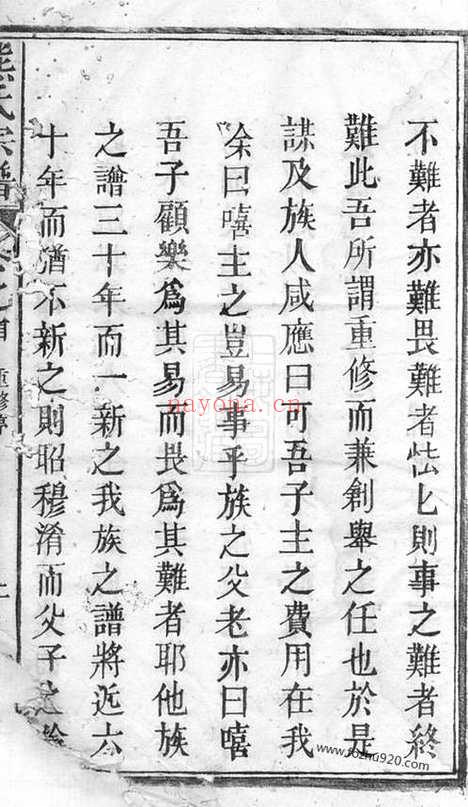 不難者亦難畏難者怯之則事之難者終
難此吾所謂重修而兼創舉之任也於是
謀及族人咸應曰可吾子主之費用在我
余曰嘻主之豈易事乎族之父老亦曰嘻
吾子顧樂爲其易而畏爲其難者耶他族
之譜三十年而一新之我族之譜將近六
十年而猶不新之則昭穆淆而父子之
氏宗譜
重修序
nayona.cn
www.fozhu920.com